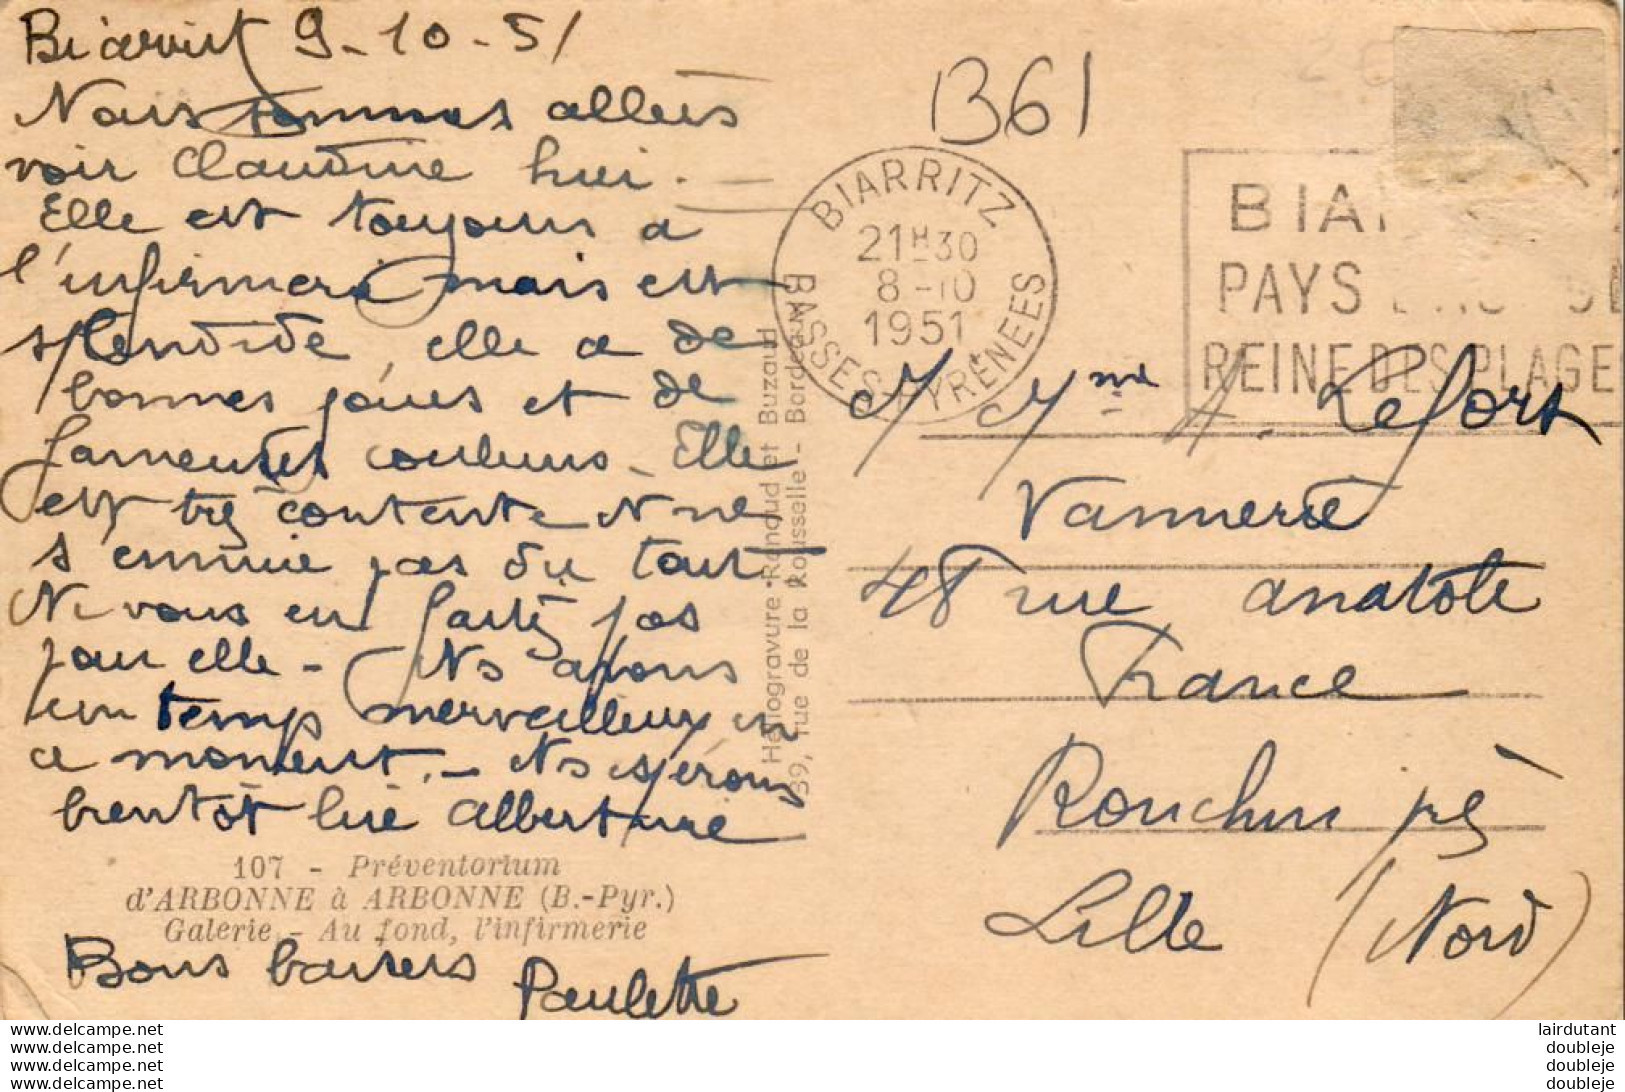 Biarritz 9-10-51
Nous sommes allées
voir Claudine hier.
Elle est toujours à
l'infirmerie mais est
splendide, elle a de
bonnes joues et de
fameuses couleurs - Elle
est très contente et ne
s'ennuie pas du tout
Ne vous en faites pas
pour elle - Ns avons
un temps merveilleux en
ce moment. - Ns espérons
bientôt lire Albertine
107 - Préventorium
d'ARBONNE à ARBONNE (B.-Pyr.)
Galerie - Au fond, l'infirmerie
Bons baisers Paulette
Héliogravure Renaud et Buzaud
39, rue de la Rousselle - Bordeaux
B61
BIARRITZ
21H30
8-10
1951
BASSES-PYRÉNÉES
BIA
PAYS
REINE DES PLAGES
M Mme A. Lefort
Vannerie
48 rue Anatole
France
Ronchin près
Lille (Nord)
www.delcampe.net
www.delcampe.net
www.delcampe.net
www.delcampe.net
lairdutant
doubleje
doubleje
doubleje